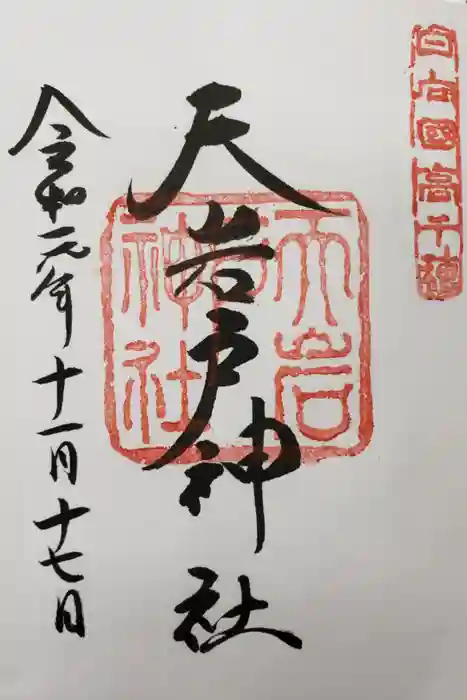 日向國高千穗
天岩戸神社
天岩戸神社
令和元年十一月十七日